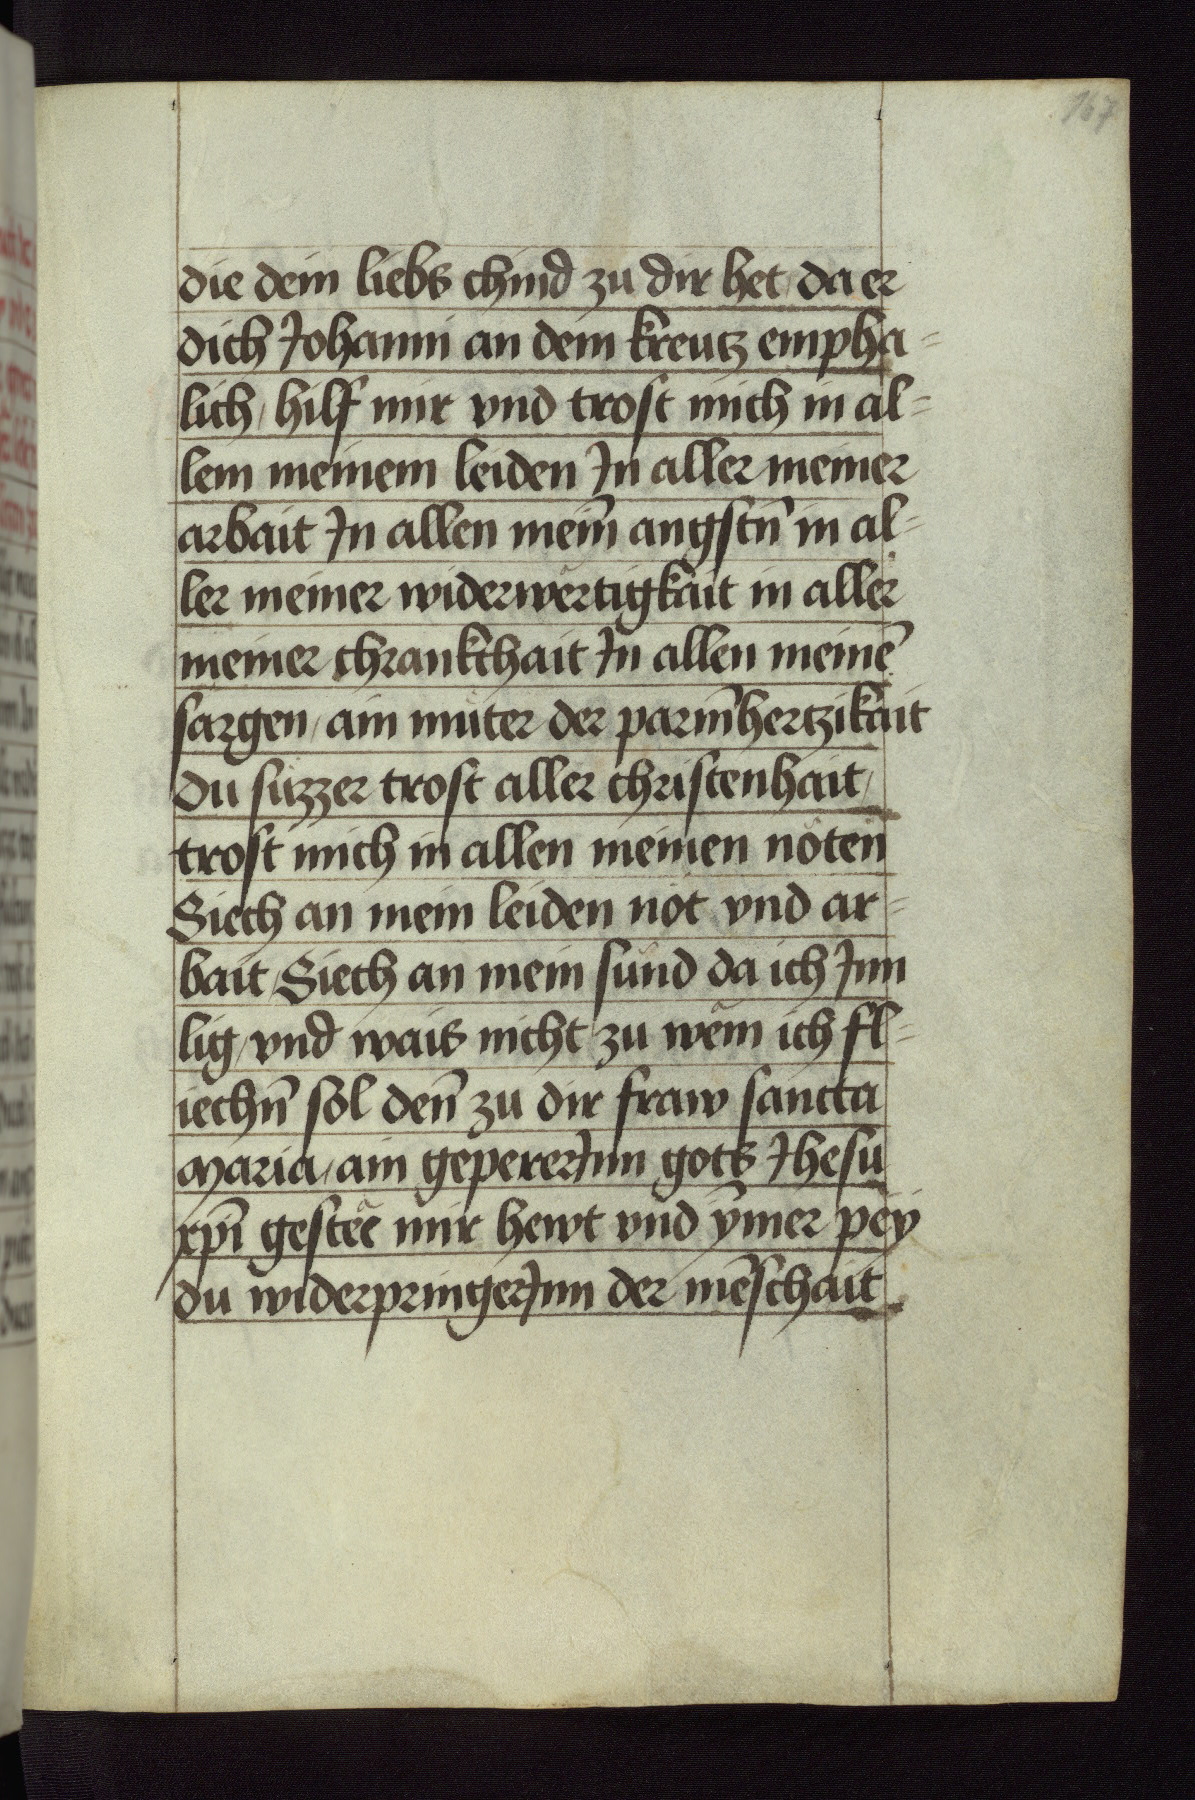 167
die dein liebs chind zu dir het / da er
dich Johanni an dem kreutz empha=
lich / hilf mir vnd trost mich in al=
lem meinem leiden Jn aller meiner
arbait Jn allen mein̄ angstn̄ in al=
ler meiner widerwërtigkait in aller
meiner chrankchait Jn allen meinē
sargen / ain müter der parm̄hertzikait
du süzzer trost aller christenhait /
trost mich in allen meinen nöten
Siech an mein leiden nöt vnd ar=
bait / Siech an mein sünd da ich Jnn
lig / vnd wais nicht zu wëm ich fl=
iechn̄ sol den̄ zu dir fraw sancta
maria / ain gepererJnn gots Jhesu
xp̄i gestee mir hewt vnd ȳmer pey
du widerpringerJnn der mēschait